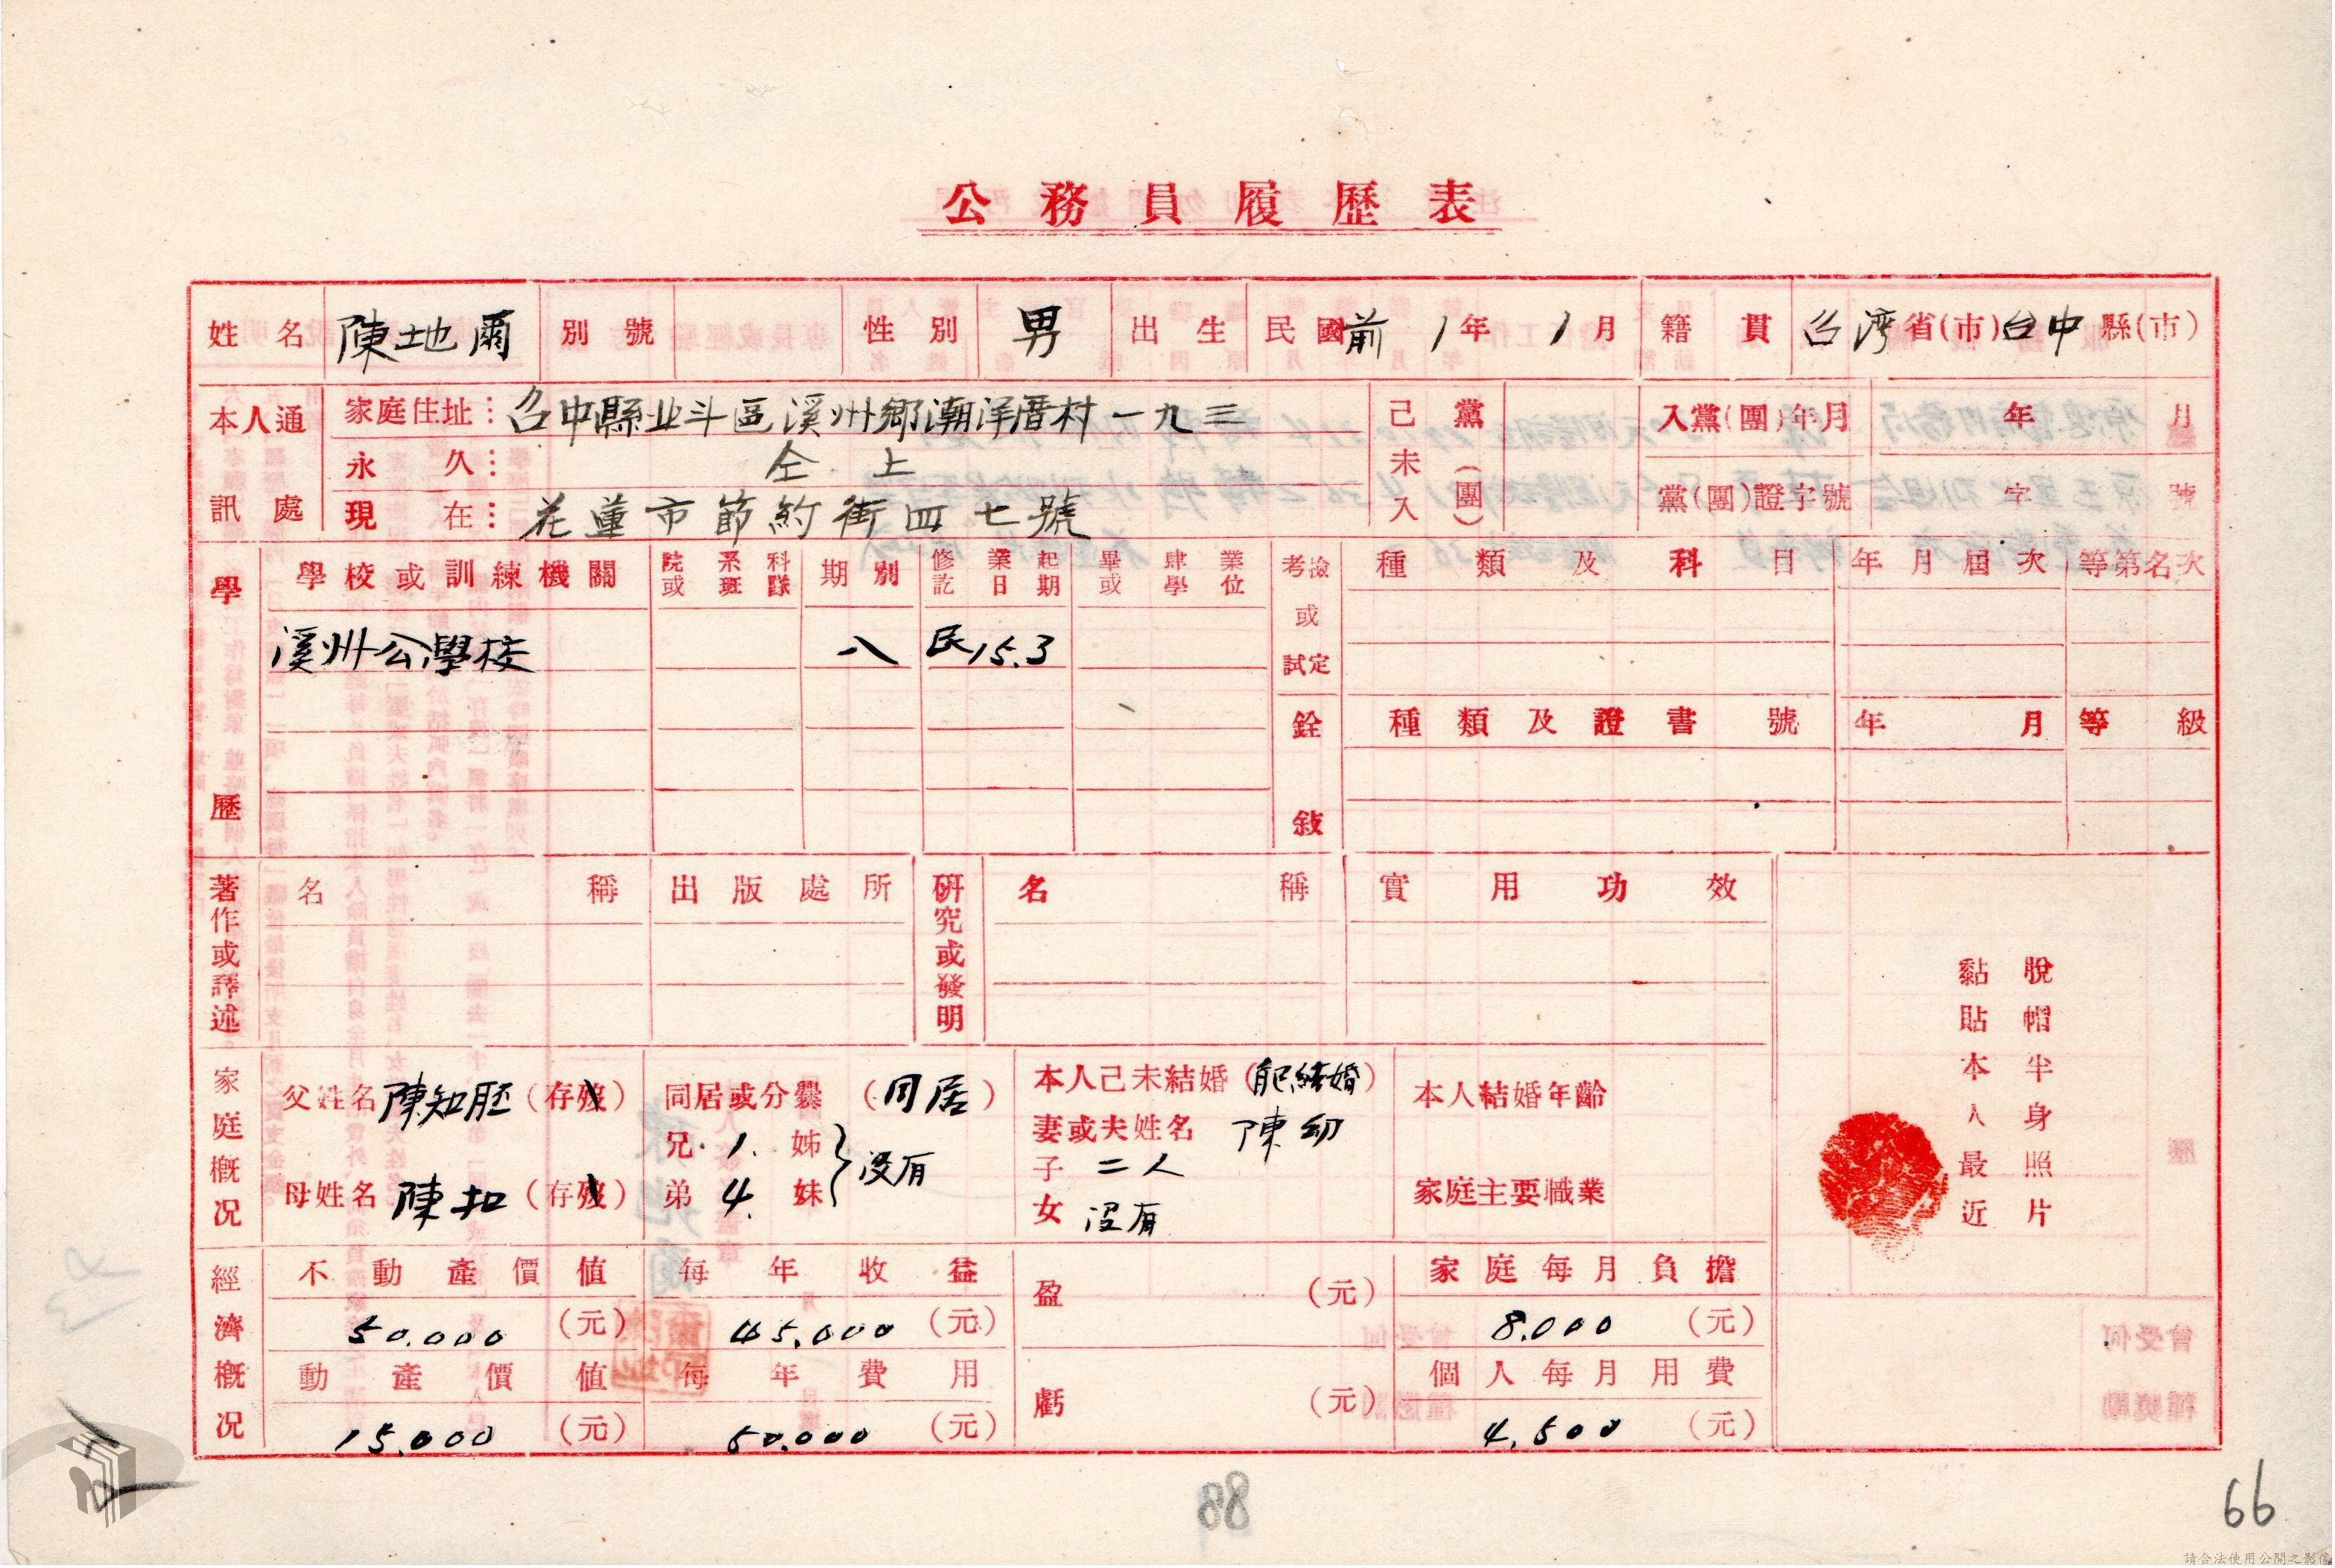 公務員履歷表
姓名 陳地爾 別號 性別 男 出生 民國前1年1月 籍貫 台灣省(市)台中縣(市)
本人通訊處 家庭住址: 台中縣北斗區溪州鄉潮洋厝村一九三
永久: 仝上
現在: 花蓮市節約街四七號
己未入黨(團) 入黨(團)年月 年 月
黨(團)證字號 字 號
學歷 學校或訓練機關 院系科或班隊 期別 修業起訖日期 畢肄業或學位
溪州公學校 八 民15.3
考檢或試定 種類及科目 年月屆次 等第名次
銓敍 種類及證書號 年月 等級
著作或譯述 名稱 出版處所
研究或發明 名稱 實用功效
家庭概況 父姓名 陳知胚 (存歿) 同居或分爨 (同居)
母姓名 陳扣 (存歿) 兄 1. 姊
弟 4. 妹 沒有
本人己未結婚 (已結婚)
妻或夫姓名 陳幼
子 二人
女 沒有
本人結婚年齡
家庭主要職業
脫帽半身照片
黏貼本人最近
經濟概況 不動產價值 每年收益 盈 (元) 家庭每月負擔
50.000 (元) 45.000 (元) 8.000 (元)
動產價值 每年費用 虧 (元) 個人每月用費
15.000 (元) 50.000 (元) 4.500 (元)
88
66
請合法使用公開之影像